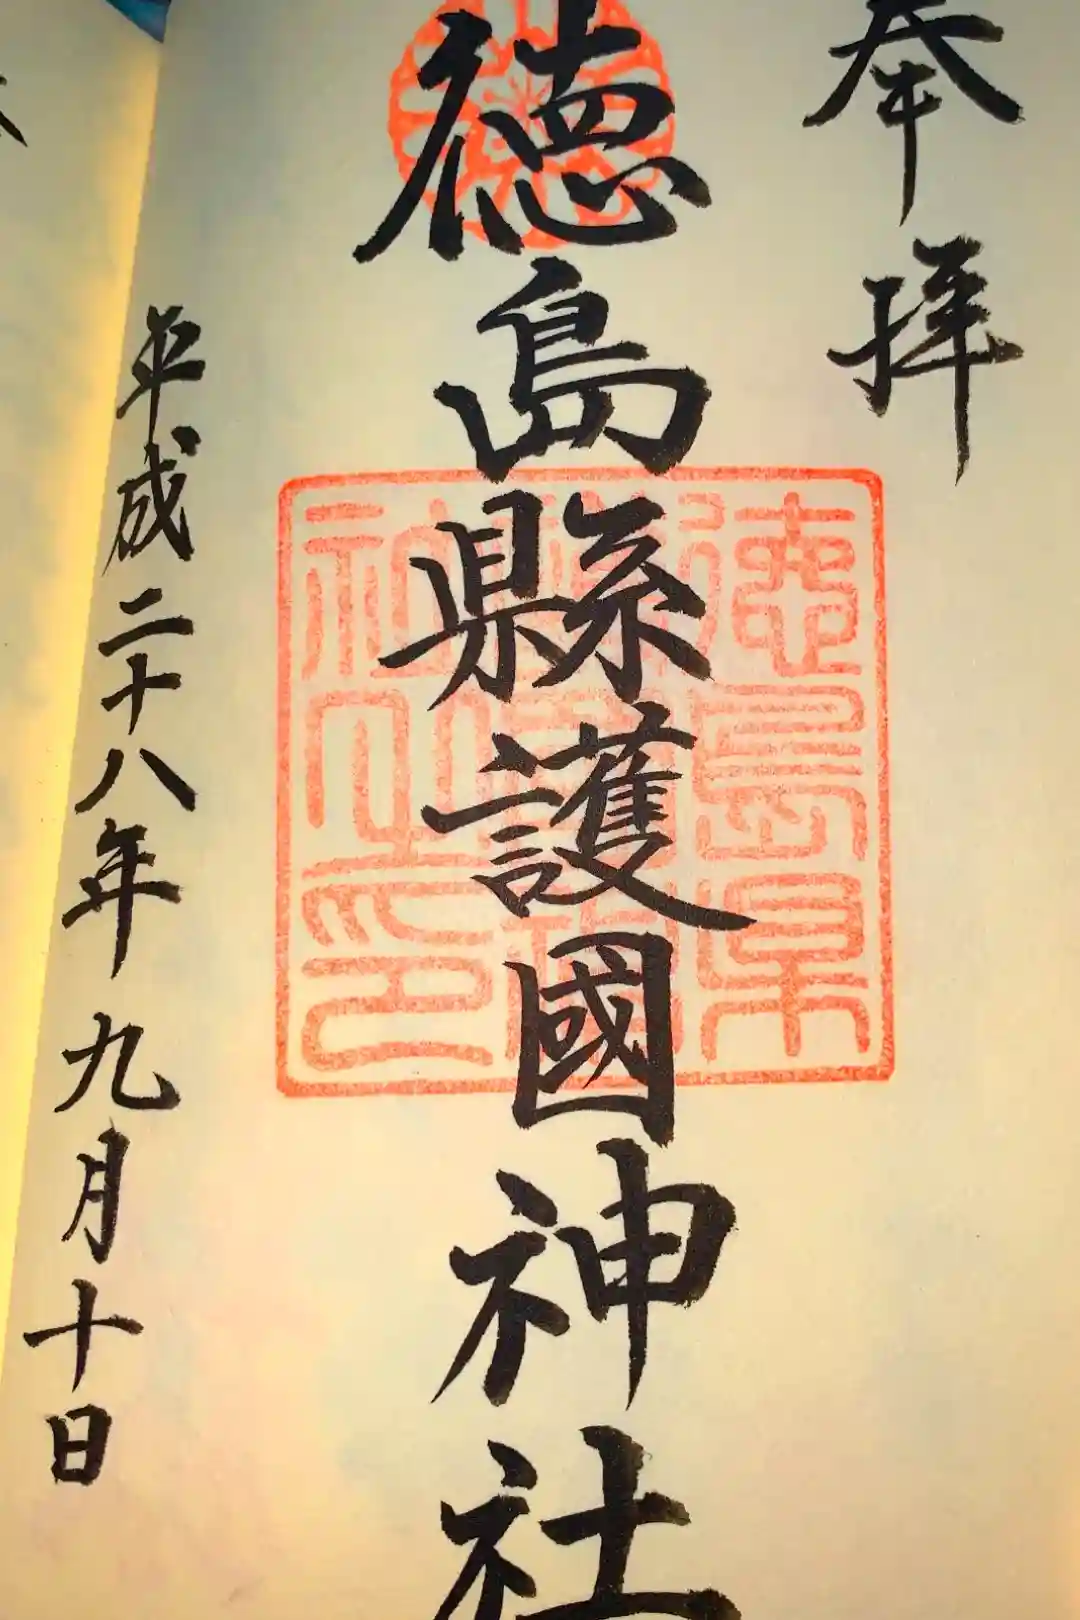 奉拝
徳島縣護國神社
徳島県
護國神
社之印
平成二十八年九月十日